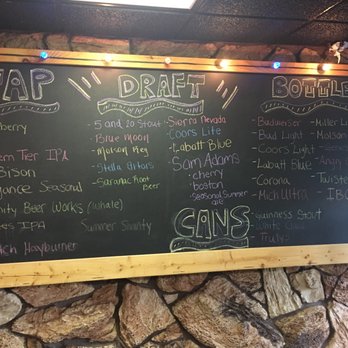 TAP
berry
ern Tier IPA
Bison
gance Seasonal
nity Beer Works (whale)
es IPA
ch Hayburner
DRAFT
- 5 and 20 Stout
- Blue Moon
- Molson Reg
- Stella Artois
- Saranac Root Beer
Summer Shanty
- Sierra Nevada
- Coors Lite
- Labatt Blue
- Sam Adams
- cherry
- boston
- Seasonal Summer ale
CANS
BOTTLE
- Budweiser
- Bud Light
- Coors Light
- Labatt Blue
- Corona
- Mich Ultra
- Guinness Stout
White Claw
Truly
- Miller Li
- Molson
- Angry
- Twiste
- IB